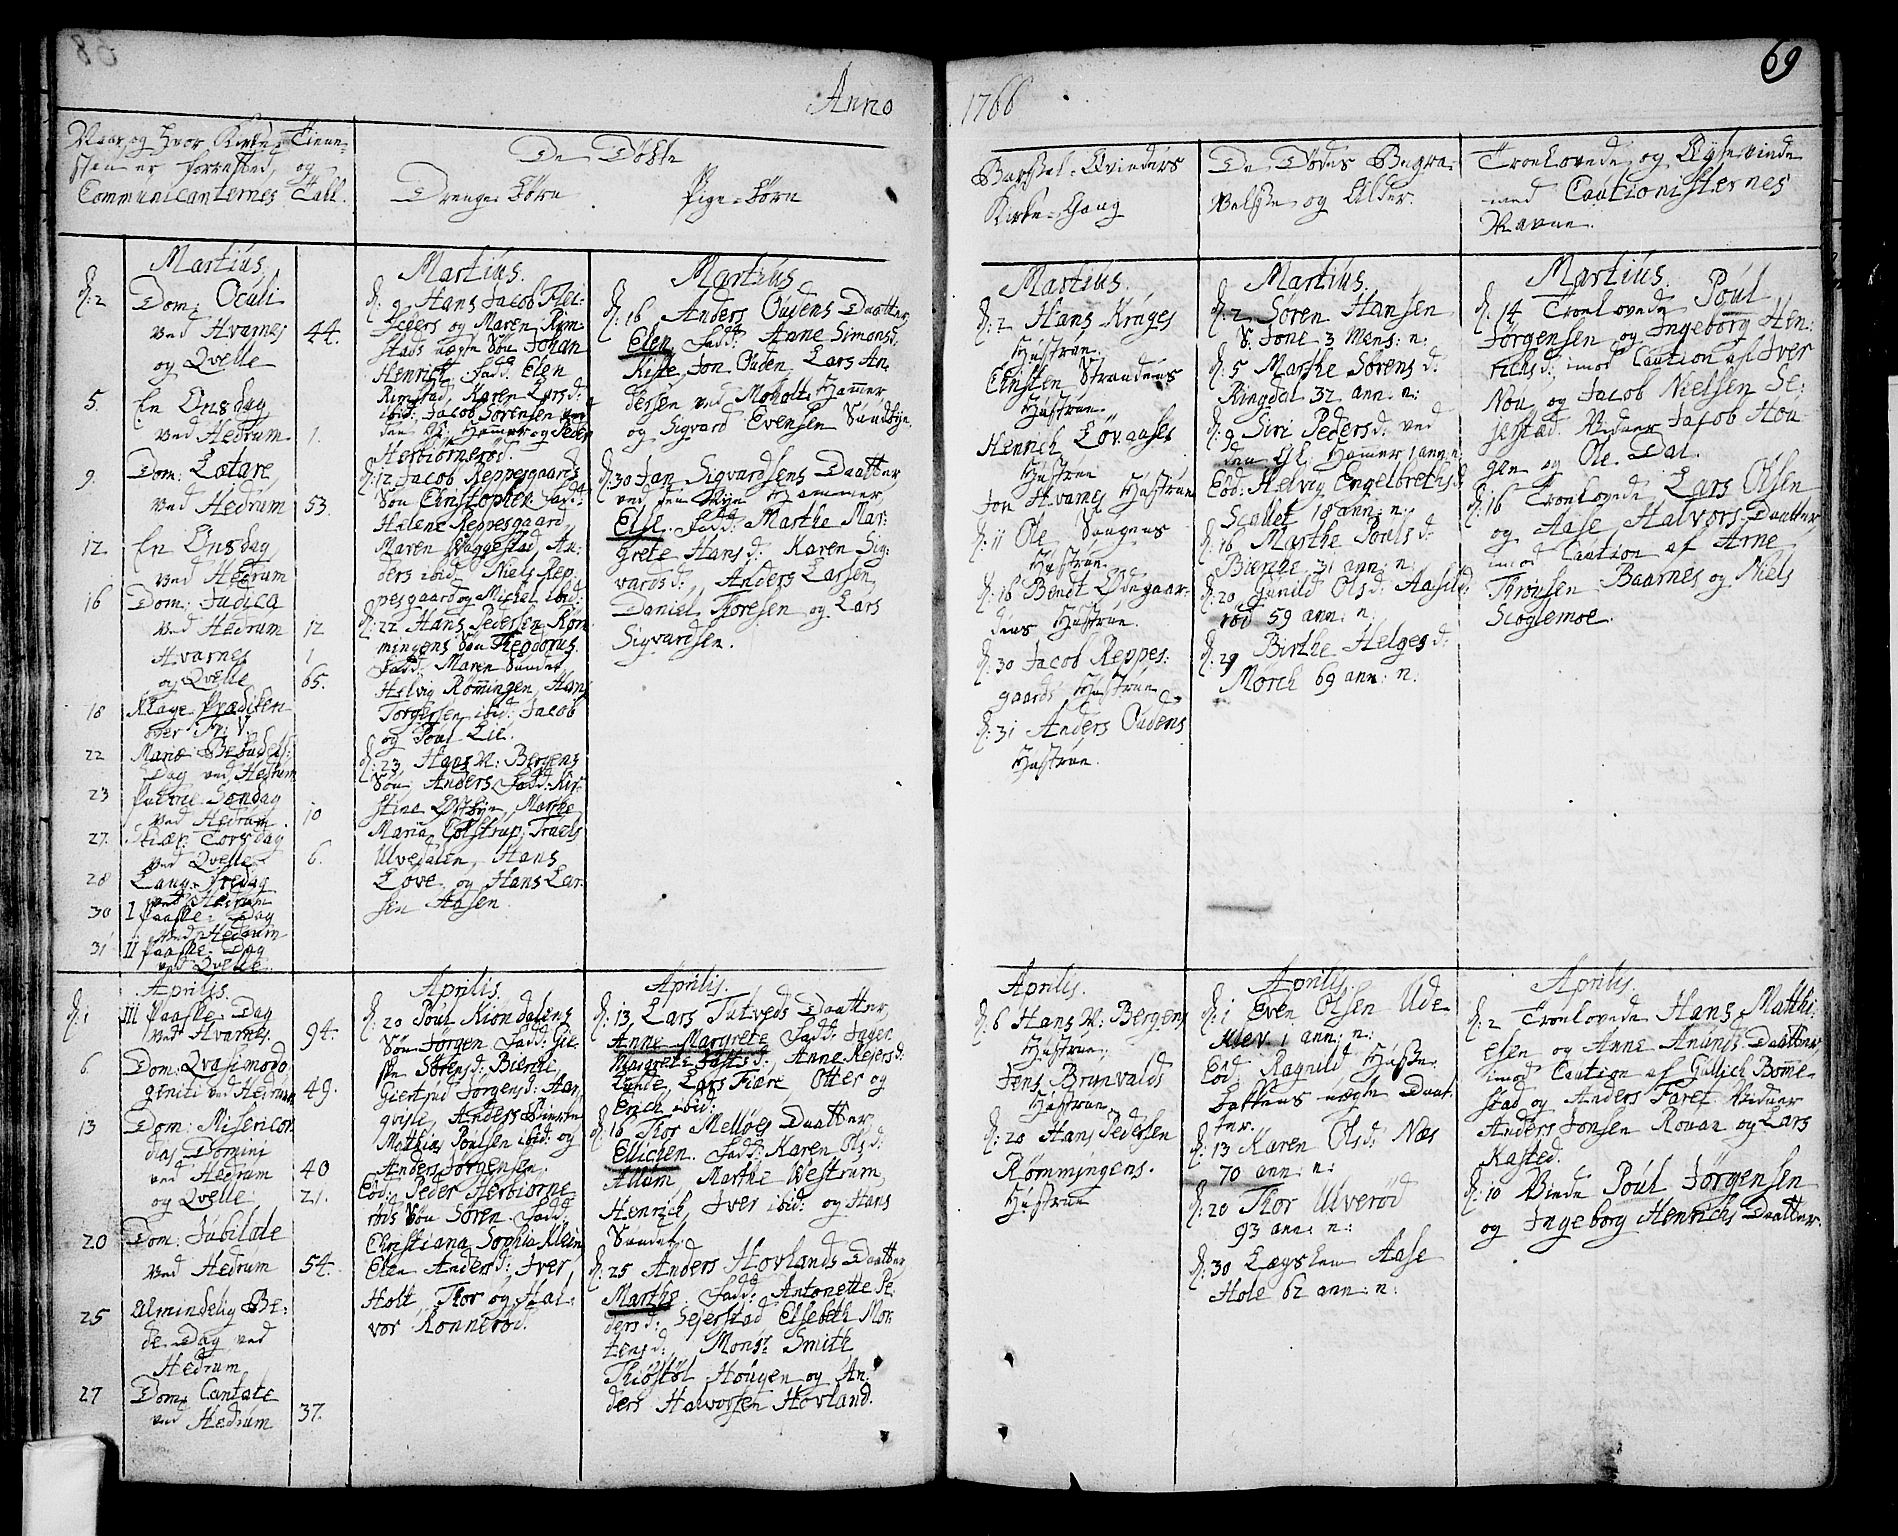 69
Anno 1766
Naar og hvor Kirke-Tiene-
sten er forretted, og
Communicanternes Tall.
De Døbte
Drenge-Børn
Pige-Børn
Barsel-Qvinders
Kirke-Gang
De Dødes Begra-
velse og Alder.
Troelovede og Egteviede
med Cautionisternes
Navne.
Martius
d: 2 Dom: Oculi
ved Hvarnes 44.
og Qvelle
5. En Onsdag
ved Hedrum 1.
9. Dom: Lætare
ved Hedrum 53.
12 En Onsdag
ved Hedrum
16 Dom: Judica
ved Hedrum 12
Hvarnes 1
og Qvelle 65.
18 Klage Prædiken
over
22 Mariæ Bebudels:
Dag ved Hedrum
23 Palme Søndag
ved Hedrum 10
27. Skiær Torsdag
ved Qvelle 6.
28 Lang-Fredag
ved Hedrum
30 I Paaske-Dag
ved Hedrum
31 II Paaske-Dag
ved Qvelle
Martius.
d: 9 Hans Jacob Flei-
schers og Maren Rim-
stads uægte Søn Johan
Henrich. Fadd: Elen
Rimstad, Karen Larsd:
ibid: Jacob Sørensen ved
den Hammer og Peder
Herbiørnerød.
d: 12 Jacob Reppesgaards
Søn Christopher Fadd:
Helene Reppesgaard,
Maren Vaggestad, An-
ders ibid: Niels Rep-
pesgaard og Michel ibid:
d: 22 Hans Pedersen Røm-
mingens Søn Theodorus.
Fadd: Maren Sundet,
Helvig Rømmingen, Hans
Torgersen ibid: Jacob
og Poul Lie.
d: 23 Hans N: Bergens
Søn Anders Fadd: Kir-
stine Østbye, Marthe
Maria Colstrup, Troels
Ulvedalen, Hans
Love og Hans Lar-
sen Aasen.
Martius
d: 16 Anders Oudens Daatter
Elen. Fadd: Anne Simonsd:
Kiste, Jon Ouden, Lars An-
dersen ved Moholt Hammer
og Sigvard Evensen Sundbye.
d: 30 Jan Sigvardsens Daatter
ved den Nye Hammer
Else. Fadd: Marthe Mar-
grete Hansd: Karen Sig-
vardsd:, Anders Larsen,
Daniel Thoresen og Lars
Sigvardsen.
Martius.
d: 2 Hans Kruges
Hustrue.
Christen Strandens
Hustrue.
Henrich Løvaases
Hustrue
Jon Hvarnes Hustrue
d: 11 Ole Saugens
Hustrue.
d: 16 Bendt Ødegaar-
dens Hustrue.
d: 30 Jacob Reppes-
gaards Hustrue
d: 31 Anders Oudens
Hustrue.
Martius.
d: 2 Søren Hansen
S. Jont 3 Mens: n:
d: 5 Marthe Sørensd:
Ringdal 37 ann: n:
d: 9 Siri Pedersd: ved
den Gl: Hamer 1 ann: n:
Eod: Helvig Engelbrethsd:
Scallet 18 ann: n:
d: 16 Marthe Poulsd:
Bierche 31 ann: n:
d: 20 Gunild Olsd: Aasild-
rød 59 ann: n:
d: 29 Birthe Helgesd:
Mørch 69 ann: n:
Martius.
d: 14 Troelovede Poul
Jørgensen og Ingeborg Hen-
richsd: imod Caution af Iver
Nou og Jacob Nielsen Se-
jerstad. Vidner Jacob Hou-
gen og Ole Dal.
d: 16 Troelovede Lars Olsen
og Aase Halvors Daatter
imod Caution af Arne
Thronsen Baarnes og Niels
Scoglemoe.
Aprilis.
d: 1 III Paaske Dag
ved Hvarnes. 94.
6. Dom: Qvasimodo
geniti ved Hedrum 49.
13 Dom: Misericor
dias Domini
ved Hedrum 40
og Qvelle 21.
20 Dom: Jubilate
ved Hedrum 54.
25 Almindelig Be-
de-Dag ved
Hedrum
27 Dom: Cantate
ved Hedrum 37.
Aprilis.
d: 20 Poul Kiondalens
Søn Jørgen Fadd: Gie-
Sørensd: Bierche,
Giertrud Jørgensd:
Anders
Mathias Poulsen ibid: og
Anders Jørgensen.
Eod: Peder Herbiørne-
røds Søn Søren Fadd:
Christiana Sophia Klein
Elen Andersd: Iver
Holt, Thor og Hal-
vor Ronnerød.
Aprilis.
d: 13. Lars Tutveds Daatter
Anne Margrete Fadd: Inger
Margrete Anne Rejersd:
Lunde, Lars Fiære, Otter og
Erich ibid:
d: 16 Thor Melløes Daatter
Ellichen. Fadd: Karen Olsd:
Allum, Marthe Westrum,
Henrich, Iver ibid: og Hans
Sundet.
d: 25 Anders Hovlands Daatter
Marthe. Fadd: Antonette Pe-
dersd: Sejerstad Elsebeth Mor-
tensd:, Monsr Smith,
Thiøstøl Hougen og An-
ders Halvorsen Hovland.
Aprilis.
d: 6 Hans N: Bergens
Hustrue.
Jens Brunvalds
Hustrue
d: 20 Hans Pedersen
Rømmingens.
Hustrue
Aprilis.
d: 1 Even Olsen Ude
Klev 1 ann: n:
Eod: Ragnild Husse-
bakkens uægte Daat-
ter.
d: 13 Karen Olsd: Næs
70 ann: n:
d: 20 Thor Ulverød
93 ann: n:
d: 30 Lægs-lem Aase
Hole 62 ann: n:
Aprilis.
d: 2 Troelovede Hans Matthi-
esen og Anne Anunds Daatter,
imod Caution af Gullich Bome-
stad og Anders Faret Vidner
Anders Jonsen Rouar og Lars
Kasted.
d: 10 Viede Poul Jørgensen
og Ingeborg Henrichs Daatter.